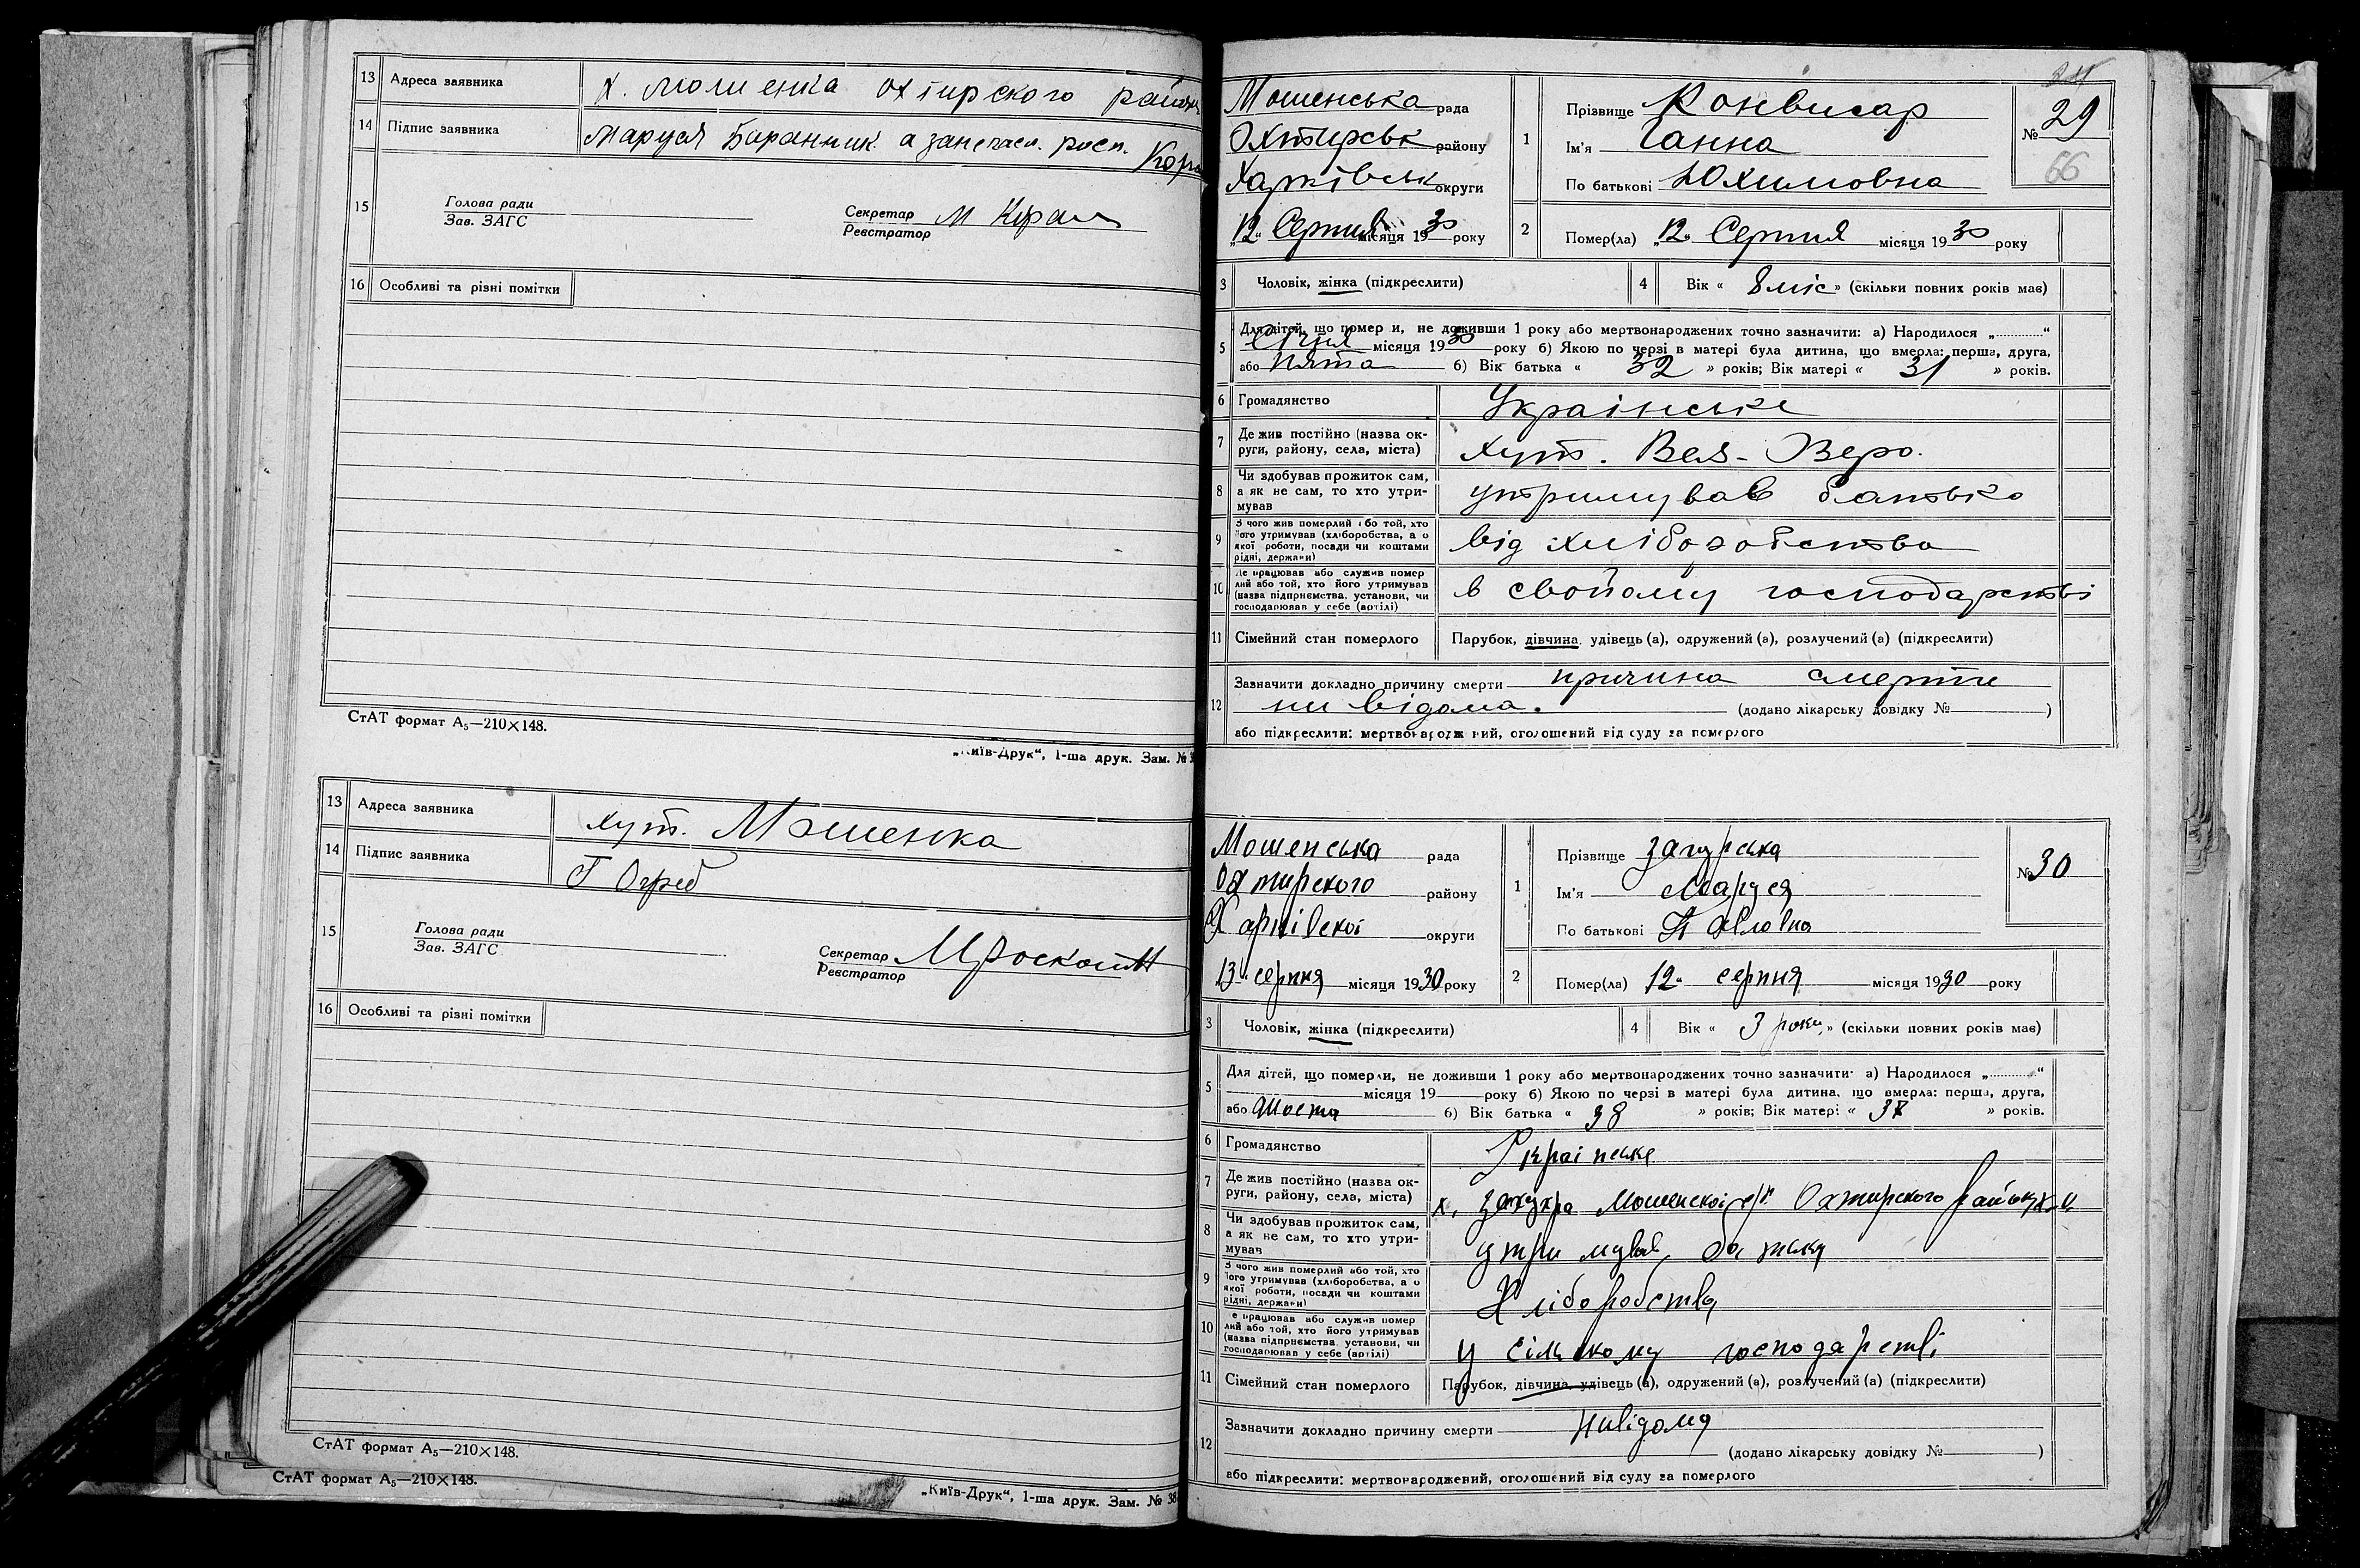 13 Адреса заявника х. Мошенка Охтирского району
14 Підпис заявника Маруся Баранник а занеписм. росп.
15 Голова ради
Зав. ЗАГС
Секретар
Реєстратор
16 Особливі та різні помітки
СтАТ формат А₅—210×148.
„Київ-Друк“, 1-ша друк. Зам. №
13 Адреса заявника хут. Мошенка
14 Підпис заявника Г Огреб
15 Голова ради
Зав. ЗАГС
Секретар
Реєстратор
16 Особливі та різні помітки
СтАТ формат А₅—210×148.
СтАТ формат А₅—210×148.
„Київ-Друк“, 1-ша друк. Зам. № 38
Мошенська рада
Охтирськ району
Харківськ округи
„12“ Серпня місяця 1930 року
1 Прізвище Конвисар
Ім'я Ганна
По батькові Юхимовна
№ 29
66
2 Помер(ла) „12“ Серпня місяця 1930 року
3 Чоловік, жінка (підкреслити)
4 Вік « 8 міс » (скільки повних років має)
5 Для дітей, що померли, не доживши 1 року або мертвонароджених точно зазначити: а) Народилося „............“
Січня місяця 1930 року б) Якою по черзі в матері була дитина, що вмерла: перша, друга,
або пята б) Вік батька « 32 » років; Вік матері « 31 » років.
6 Громадянство Українське
7 Де жив постійно (назва ок-
руги, району, села, міста) хут. Вел-Озеро.
8 Чи здобував прожиток сам,
а як не сам, то хто утри-
мував утримував батько
9 З чого жив померлий або той, хто
його утримував (хліборобства, а о
якої роботи, посади чи коштами
рідні, держави) від хліборобства
10 Де працював або служив помер
лий або той, хто його утримував
(назва підприємства, установи, чи
господарював у себе (артілі) в свойому господарстві
11 Сімейний стан померлого Парубок, дівчина, удівець (а), одружений (а), розлучений (а) (підкреслити)
12 Зазначити докладно причину смерти причина смерти
ни відома. (додано лікарську довідку № )
або підкреслити: мертвонароджений, оголошений від суду за померлого
Мошенська рада
Охтирского району
Харківскої округи
13 серпня місяця 1930 року
1 Прізвище Загурська
Ім'я Маруся
По батькові Павловна
№ 30
2 Помер(ла) 12 серпня місяця 1930 року
3 Чоловік, жінка (підкреслити)
4 Вік « 3 роки » (скільки повних років має)
5 Для дітей, що померли, не доживши 1 року або мертвонароджених точно зазначити: а) Народилося „............“
місяця 19 року б) Якою по черзі в матері була дитина, що вмерла: перша, друга,
або шоста б) Вік батька « 38 » років; Вік матері « 37 » років.
6 Громадянство Українське
7 Де жив постійно (назва ок-
руги, району, села, міста) х. Мошенскої с/р Охтирского району
8 Чи здобував прожиток сам,
а як не сам, то хто утри-
мував утримував батько
9 З чого жив померлий або той, хто
його утримував (хліборобства, а о
якої роботи, посади чи коштами
рідні, держави) Хліборобства
10 Де працював або служив помер
лий або той, хто його утримував
(назва підприємства, установи, чи
господарював у себе (артілі) у сільскому господарстві
11 Сімейний стан померлого Парубок, дівчина, удівець (а), одружений (а), розлучений (а) (підкреслити)
12 Зазначити докладно причину смерти нивідома
(додано лікарську довідку № )
або підкреслити: мертвонароджений, оголошений від суду за померлого